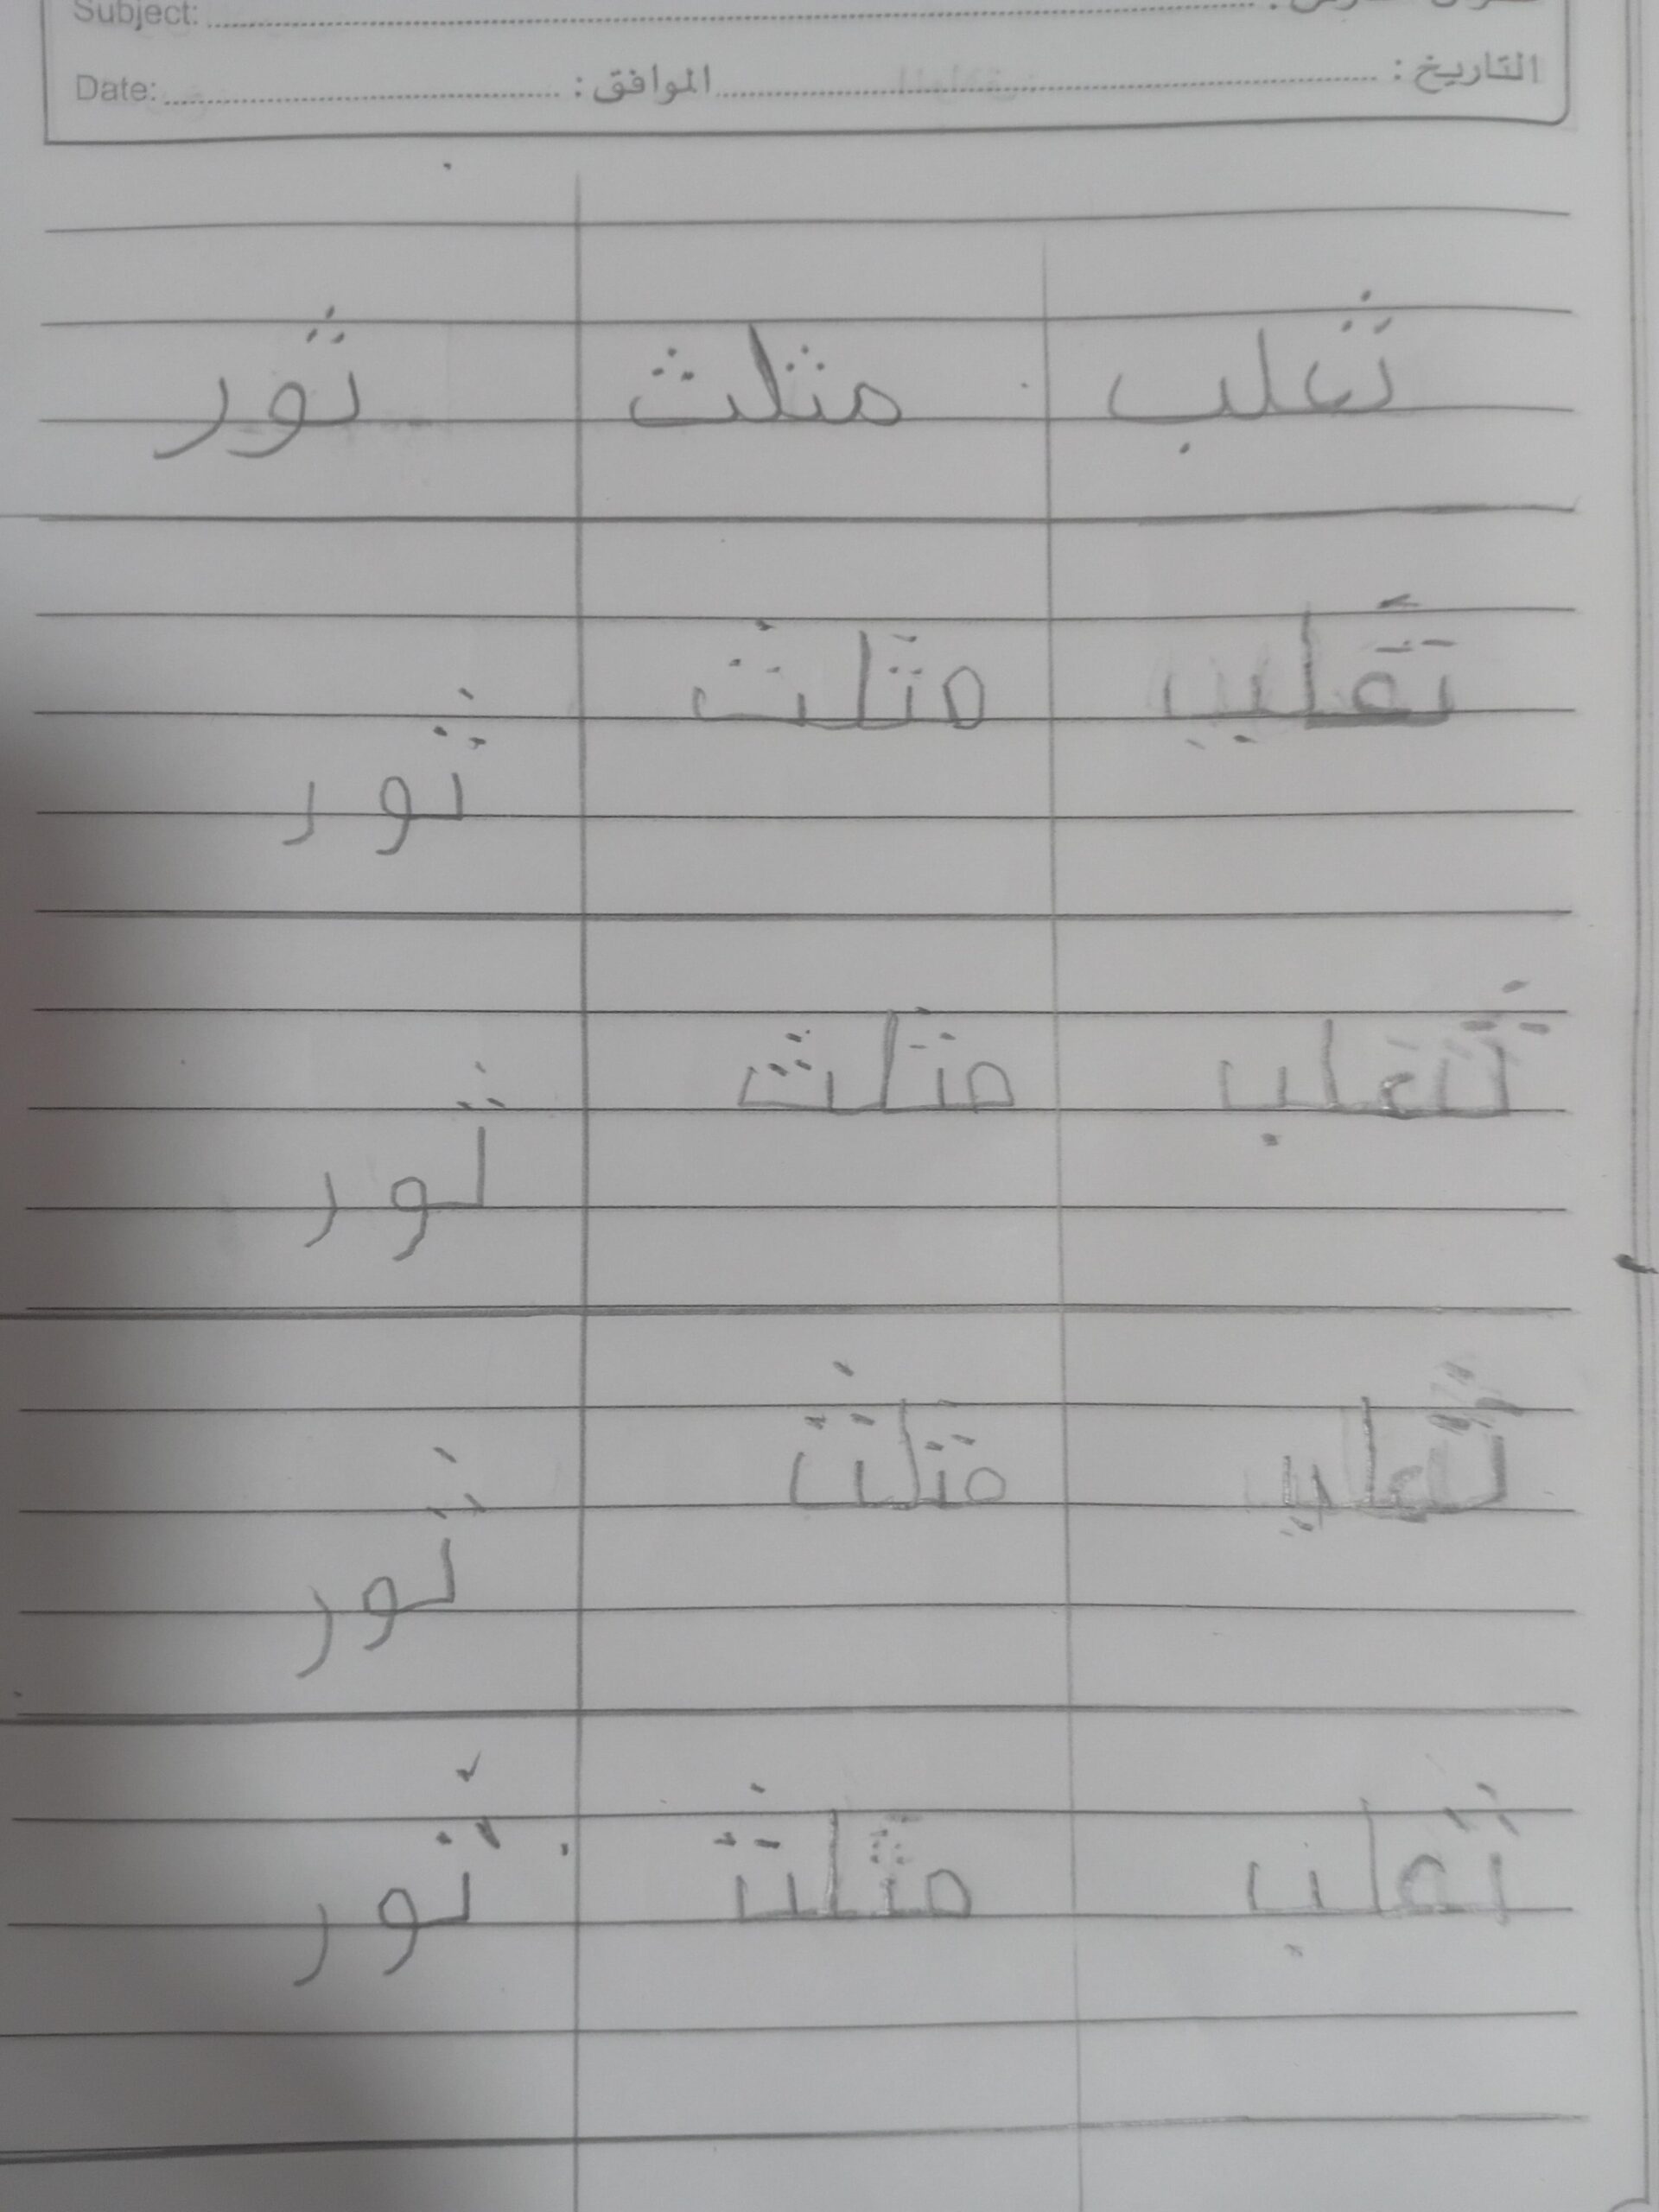 Subject:
التاريخ : الموافق : Date:
ثعلب مثلث ثور
مثلث
ثور
ثعلب مثلث
ثور
مثلث
ثور
ثعلب مثلث ثور